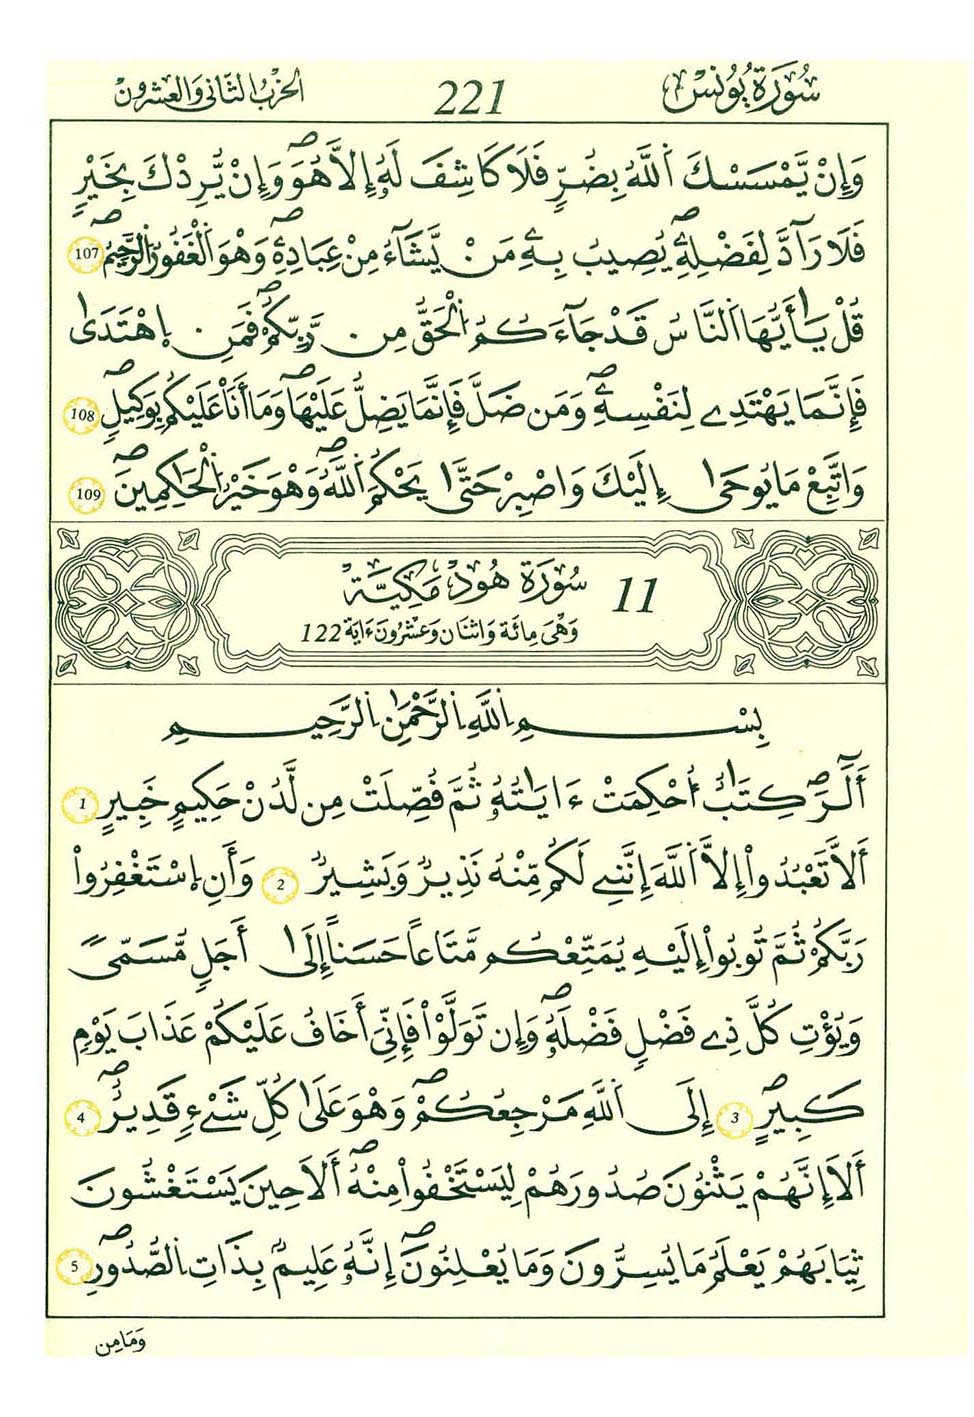 سُورَةُ يُونُسَ
221
الحِزْبُ الثَّانِي وَالعِشْرُونَ
وَإِنْ يَّمْسَسْكَ اَ۬للَّهُ بِضُرّٖ فَلَا كَاشِفَ لَهُۥٓ إِلَّا هُوَۖ وَإِنْ يُّرِدْكَ بِخَيْرٖ
فَلَا رَآدَّ لِفَضْلِهِۦۖ يُصِيبُ بِهِۦ مَنْ يَّشَآءُ مِنْ عِبَادِهِۦۖ وَهْوَ اَ۬لْغَفُورُ اُ۬لرَّحِيمُۖ 107
قُلْ يَٰٓأَيُّهَا اَ۬لنَّاسُ قَدْ جَآءَكُمُ اُ۬لْحَقُّ مِن رَّبِّكُمْۖ فَمَنِ اِ۪هْتَد۪ىٰ
فَإِنَّمَا يَهْتَدِے لِنَفْسِهِۦۖ وَمَن ضَلَّ فَإِنَّمَا يَضِلُّ عَلَيْهَاۖ وَمَآ أَنَا۠ عَلَيْكُم بِوَكِيلٖۖ 108
وَاتَّبِعْ مَا يُوح۪ىٰٓ إِلَيْكَ وَاصْبِرْ حَتَّىٰ يَحْكُمَ اَ۬للَّهُۖ وَهْوَ خَيْرُ اُ۬لْحَٰكِمِينَۖ 109
11 سُورَةُ هُودٍ مَكِّيَّة
وَهْيَ مِائَة وَاثْنَان وَعشْرُونَ ءَايَة 122
بِسْمِ اِ۬للَّهِ اِ۬لرَّحْمَٰنِ اِ۬لرَّحِيمِ
أَلَٓرۖ كِتَٰبٌ اُحْكِمَتَ ايَٰتُهُۥ ثُمَّ فُصِّلَتْ مِن لَّدُنْ حَكِيمٍ خَبِيرٍ 1
أَلَّا تَعْبُدُوٓاْ إِلَّا اَ۬للَّهَ إِنَّنِے لَكُم مِّنْهُ نَذِيرٞ وَبَشِيرٞ 2 وَأَنِ اِ۪سْتَغْفِرُواْ
رَبَّكُمْ ثُمَّ تُوبُوٓاْ إِلَيْهِ يُمَتِّعْكُم مَّتَٰعاً حَسَناً إِلَىٰٓ أَجَلٖ مُّسَمّىٗ
وَيُؤْتِ كُلَّ ذِے فَضْلٖ فَضْلَهُۥۖ وَإِن تَوَلَّوْاْ فَإِنِّيَ أَخَافُ عَلَيْكُمْ عَذَابَ يَوْمٖ
كَبِيرٍۖ 3 إِلَى اَ۬للَّهِ مَرْجِعُكُمْۖ وَهْوَ عَلَىٰ كُلِّ شَےْءٖ قَدِيرٌۖ 4
أَلَآ إِنَّهُمْ يَثْنُونَ صُدُورَهُمْ لِيَسْتَخْفُواْ مِنْهُۖ أَلَا حِينَ يَسْتَغْشُونَ
ثِيَابَهُمْ يَعْلَمُ مَا يُسِرُّونَ وَمَا يُعْلِنُونَۖ إِنَّهُۥ عَلِيمُۢ بِذَاتِ اِ۬لصُّدُورِۖ 5
وَمَا مِن